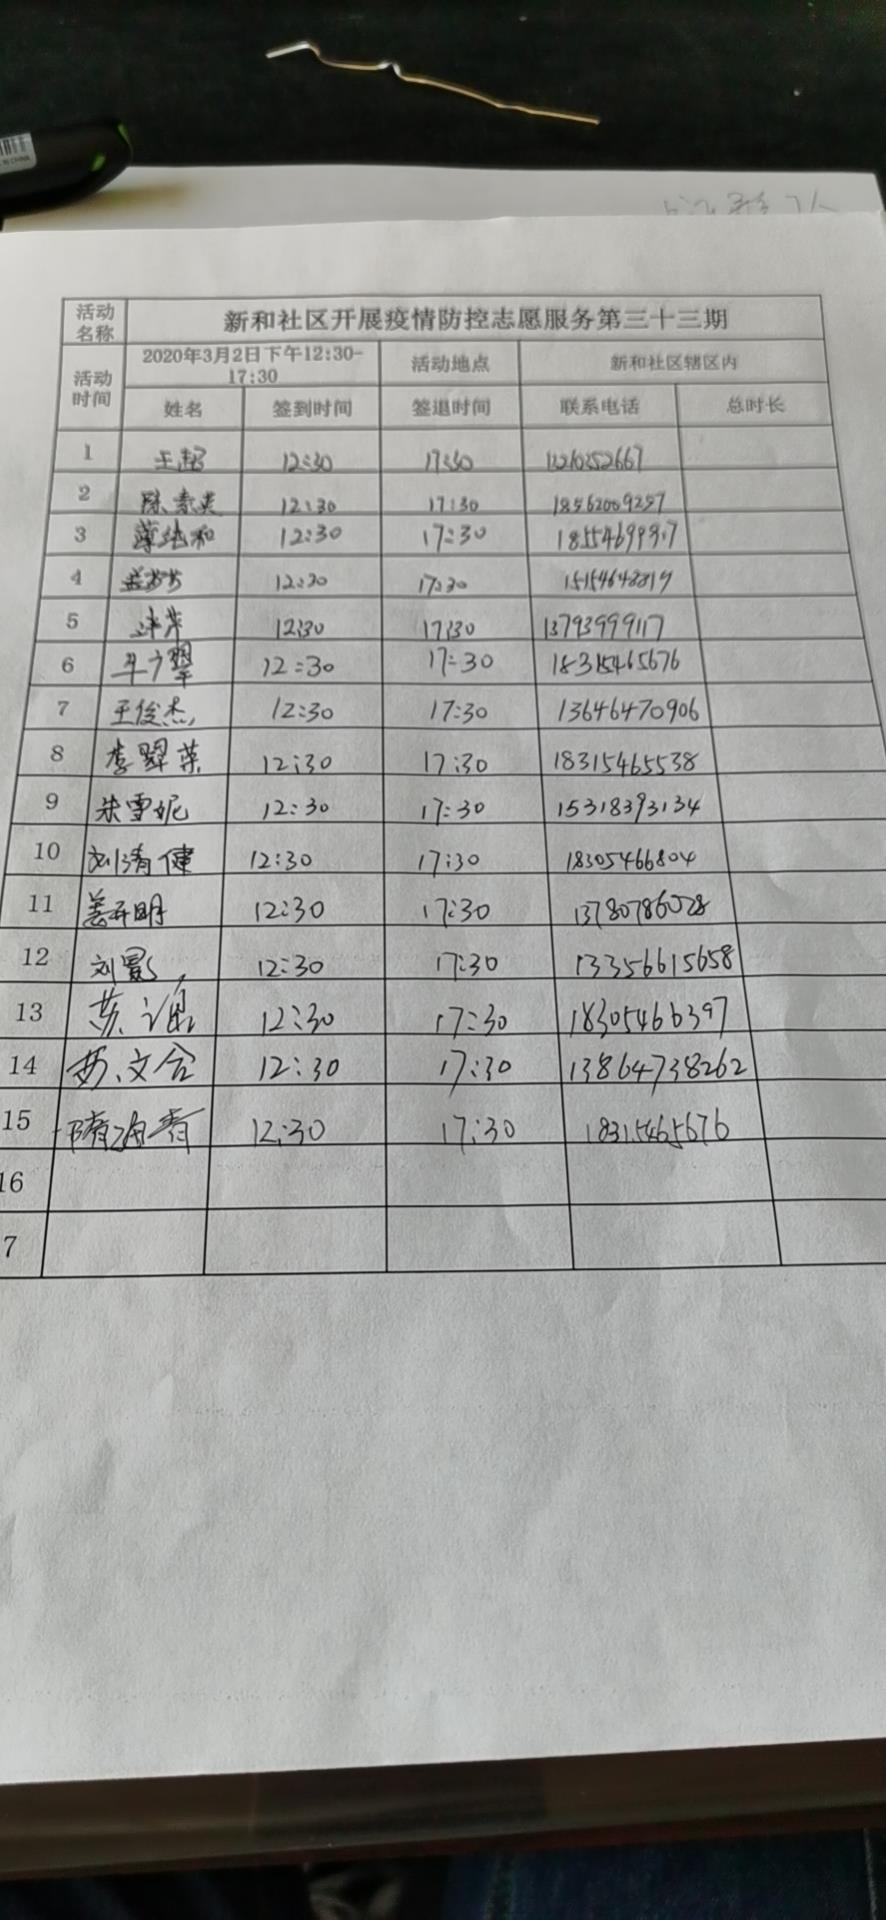 活动名称 新和社区开展疫情防控志愿服务第三十三期
活动时间 2020年3月2日下午12:30-17:30 活动地点 新和社区辖区内
姓名 签到时间 签退时间 联系电话 总时长
1 王超 12:30 17:30
2 陈素英 12:30 17:30 18562009297
3 薄纯和 12:30 17:30
4 12:30 17:30 15154648819
5 12:30 17:30 13793999117
6 17:30 12:30 18315465676
7 王俊杰 12:30 17:30 13646470906
8 李翠荣 12:30 17:30 18315465538
9 朱雪妮 12:30 17:30 15318393134
10 刘清健 12:30 17:30 18305466804
11 姜开明 12:30 17:30 13780786028
12 刘景 12:30 17:30 13356615658
13 苏 12:30 17:30 18305466397
14 苏文合 12:30 17:30 13864738262
15 隋海青 12:30 17:30 18315465676
16
7